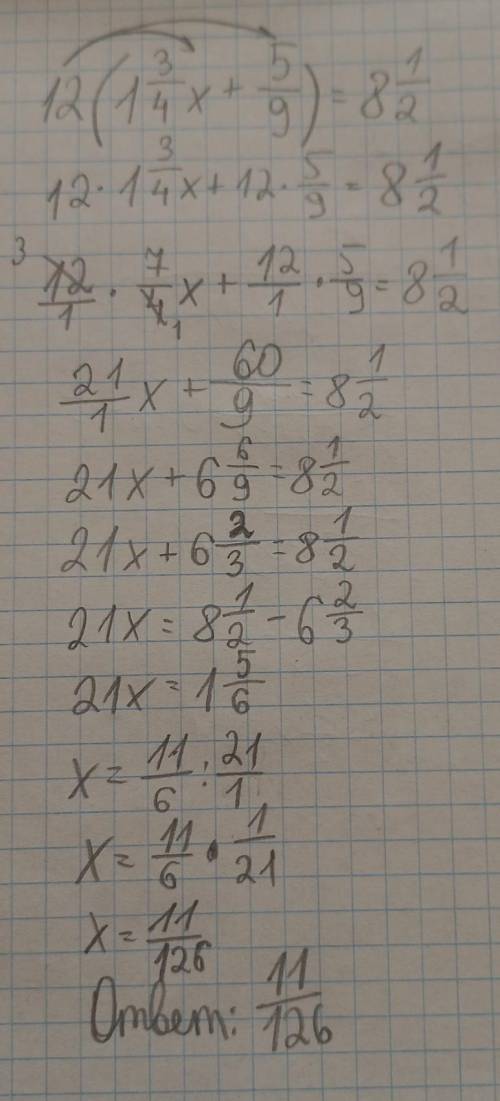 12(1 3/4 x + 5/9) = 8 1/2
12 · 1 3/4 x + 12 · 5/9 = 8 1/2
3 12/1 · 7/4 1 x + 12/1 · 5/9 = 8 1/2
21/1 x + 60/9 = 8 1/2
21x + 6 6/9 = 8 1/2
21x + 6 2/3 = 8 1/2
21x = 8 1/2 - 6 2/3
21x = 1 5/6
x = 11/6 : 21/1
x = 11/6 · 1/21
x = 11/126
Ответ: 11/126